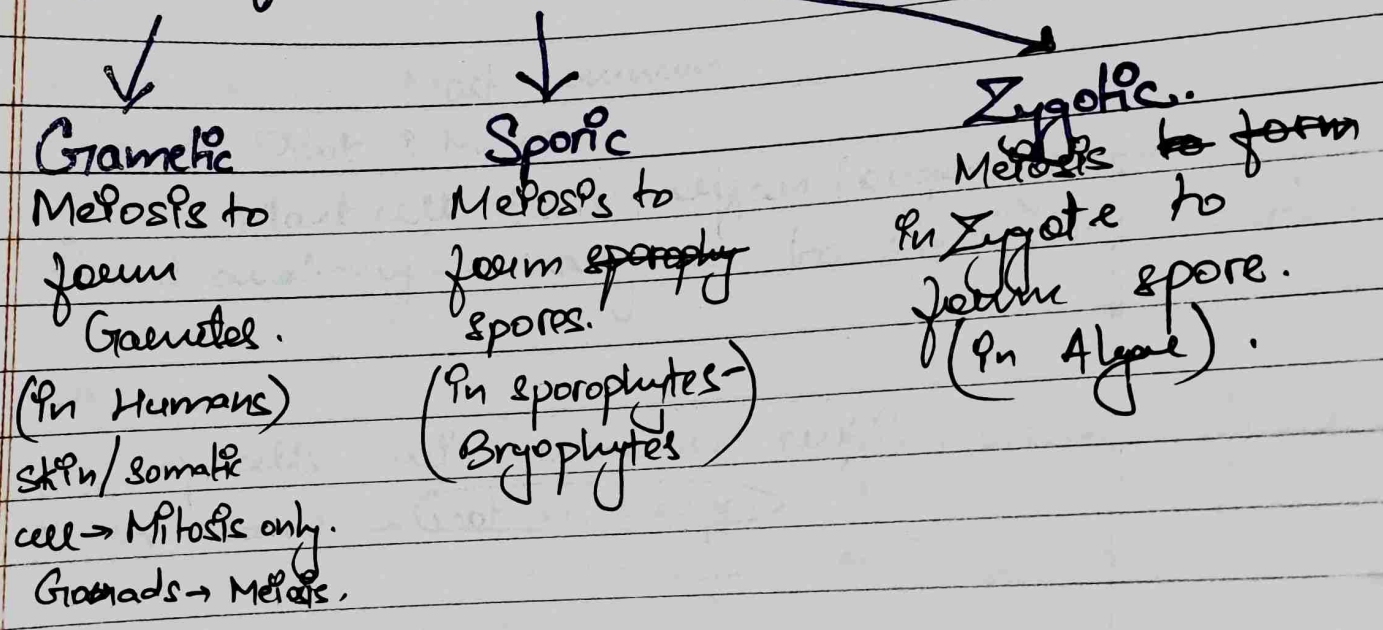 Gametic
Meiosis to
form
Gametes.
(in Humans)
skin/somatic
cell → Mitosis only.
Gonads → Meiosis.
Sporic
Meiosis to
form sporophy
spores.
(in sporophytes-
Bryophytes)
Zygotic.
Meiosis to form
in Zygote to
form spore.
(in Algae).